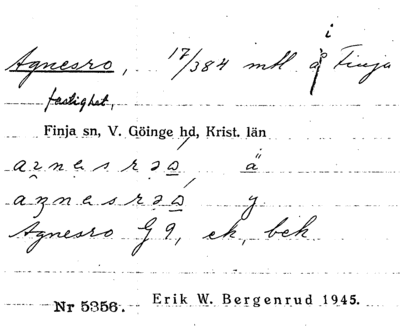 i
Agnesro, 17/384 mtl å Finja
fastighet,
Finja sn, V. Göinge hd, Krist. län
ä
y
Agnesro G 9, ek, bck
Nr 5356. Erik W. Bergenrud 1945.